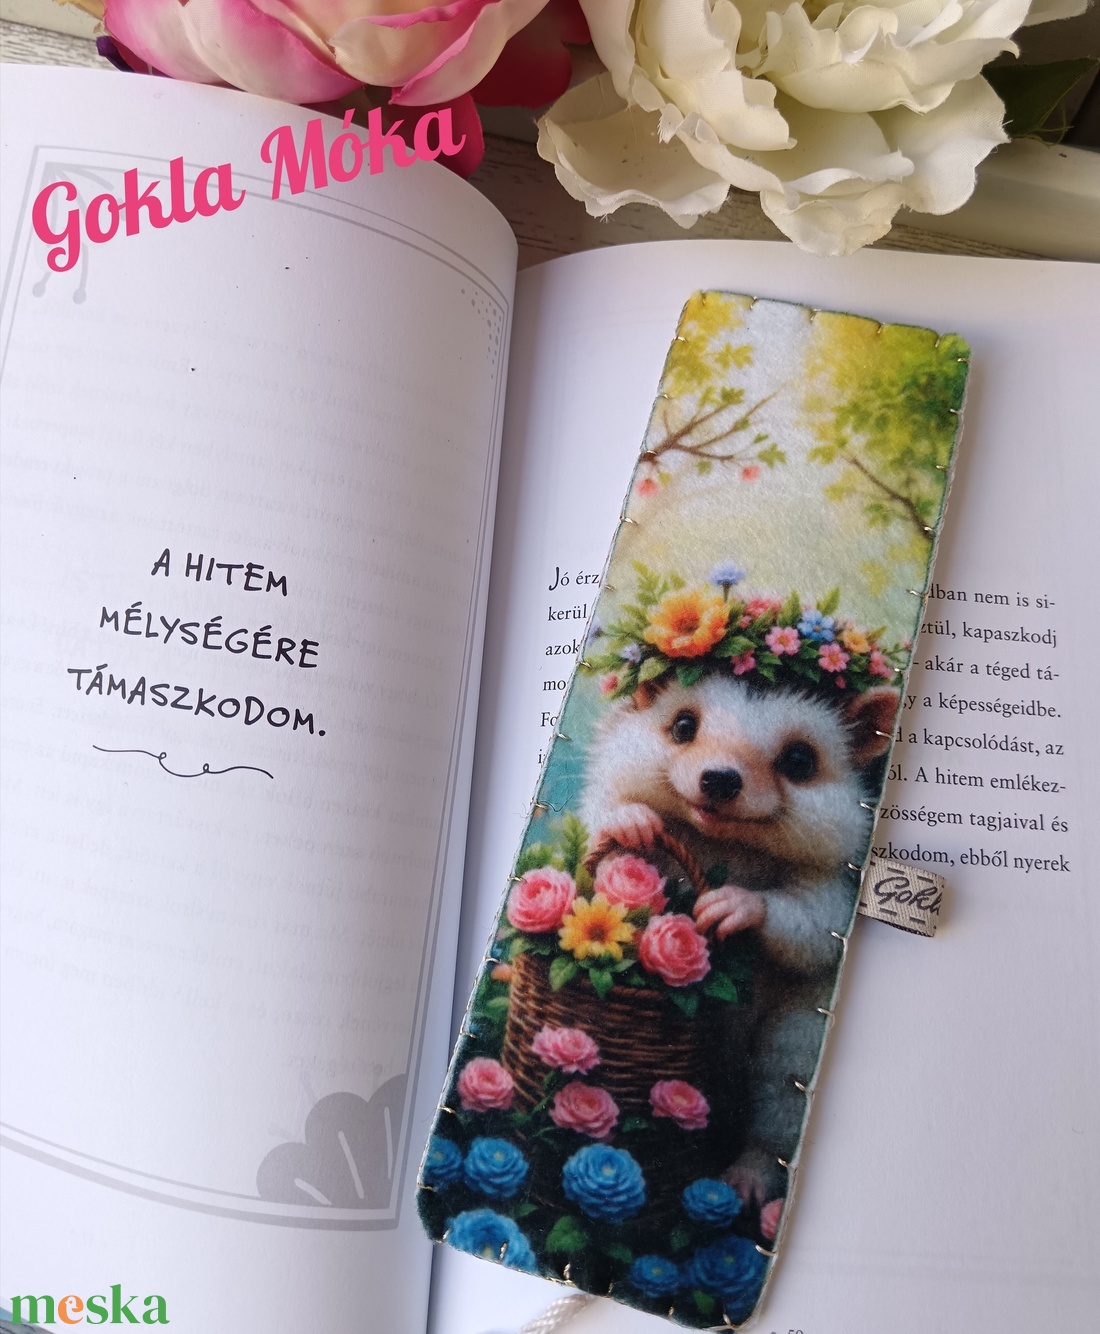 Gokla Móka
A HITEM
MÉLYSÉGÉRE
TÁMASZKODOM.
Jó érz
kerül
azok
mo
lban nem is si-
ztül, kapaszkodj
- akár a téged tá-
y a képességeidbe.
d a kapcsolódást, az
ól. A hitem emlékez-
zösségem tagjaival és
szkodom, ebből nyerek
Gokl
meska